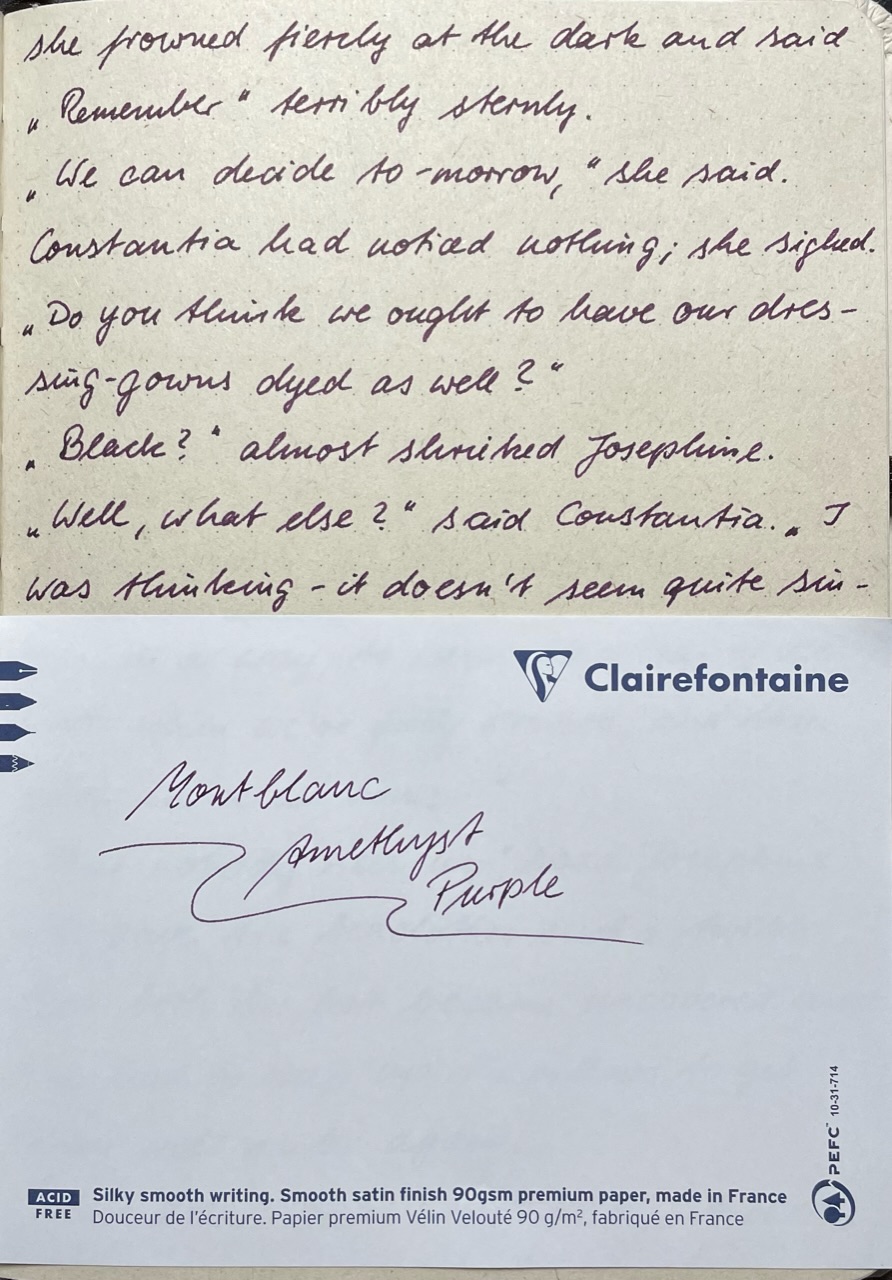 she frowned fiercly at the dark and said
„Remember“ terribly sternly.
„We can decide to-morrow,“ she said.
Constantia had noticed nothing; she sighed.
„Do you think we ought to have our dres-
sing-gowns dyed as well?“
„Black?“ almost shrieked Josephine.
„Well, what else?“ said Constantia. „I
was thinking - it doesn't seem quite sin-
Clairefontaine
Montblanc
Amethyst
Purple
PEFC™ 10-31-714
ACID FREE
Silky smooth writing. Smooth satin finish 90gsm premium paper, made in France
Douceur de l'écriture. Papier premium Vélin Velouté 90 g/m², fabriqué en France